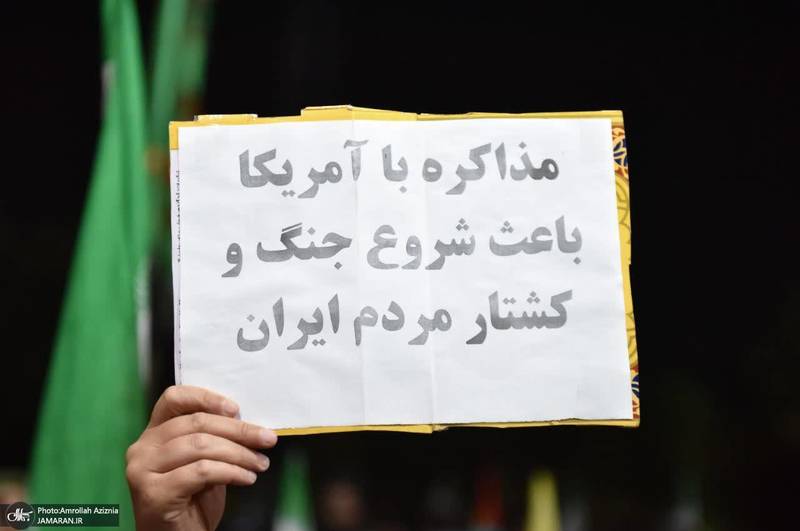 مذاکره با آمریکا
باعث شروع جنگ و
کشتار مردم ایران
Photo:Amrollah Aziznia
JAMARAN.IR